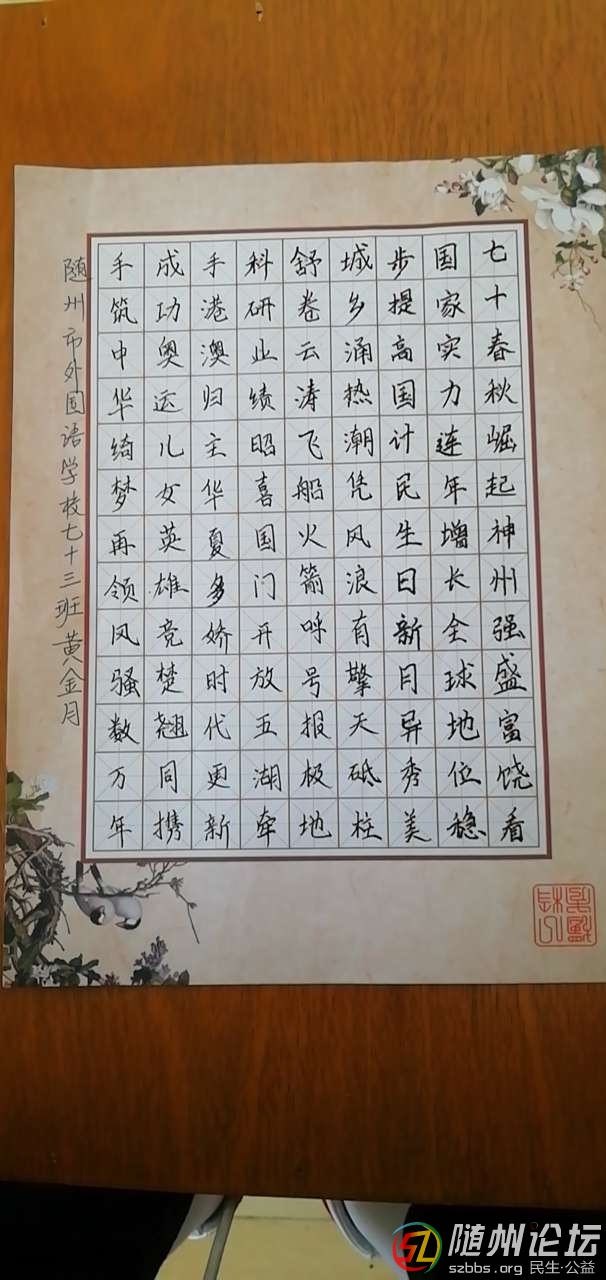 七十春秋崛起神州强盛富饶看
国家实力连年增长全球地位稳
步提高国计民生日新月异秀美
城乡涌热潮凭风浪有擎天砥柱
舒卷云涛飞船火箭呼号报极地
科研业绩昭喜国门开放五湖牵
手港澳归主华夏多娇时代更新
成功奥运儿女英雄竞楚翘同携
手筑中华绮梦再领风骚数万年
随州市外国语学校七十三班黄金月
随州论坛
szbbs.org 民生·公益